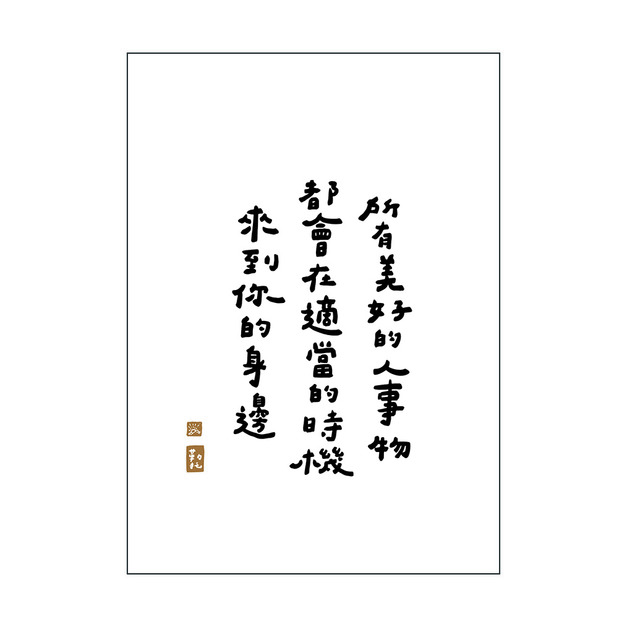 所有美好的人事物
都會在適當的時機
來到你的身邊